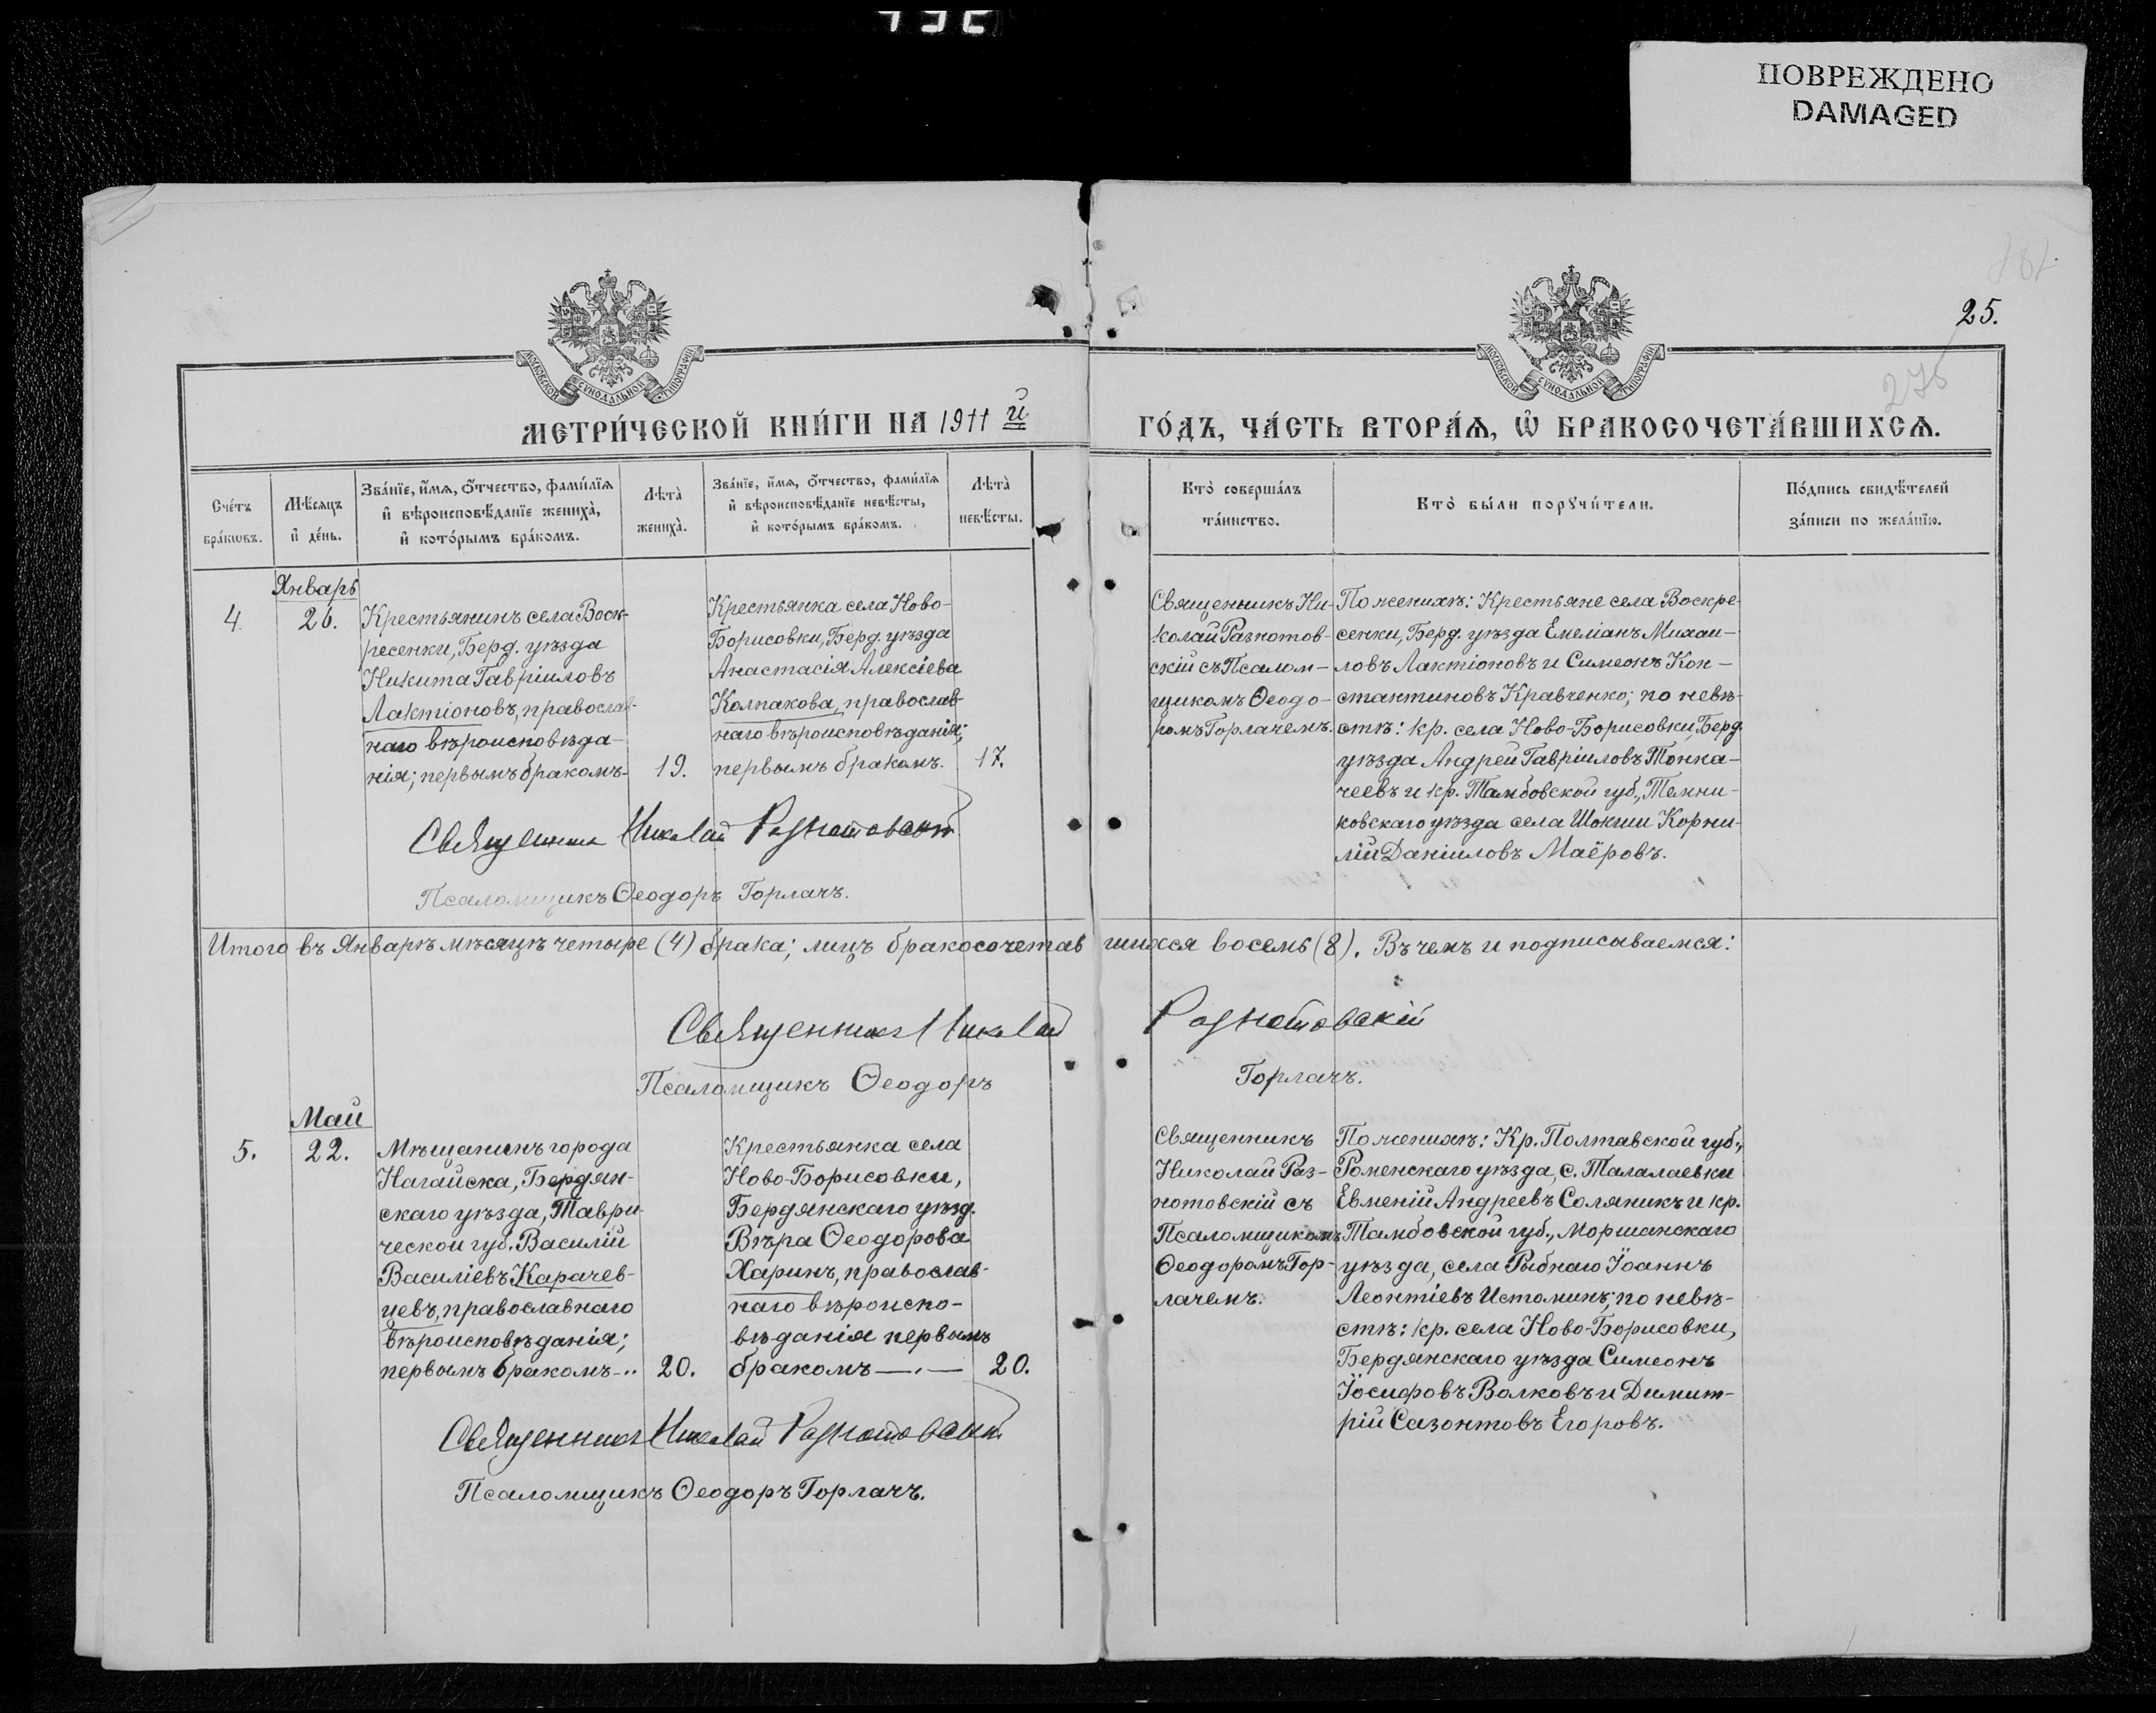 ПОВРЕЖДЕНО
DAMAGED
25.
276
МОСКОВСКОЙ СѴНОДАЛЬНОЙ ТИПОГРАФІИ
МОСКОВСКОЙ СѴНОДАЛЬНОЙ ТИПОГРАФІИ
МЕТРИ́ЧЕСКОЙ КНИ́ГИ НА 1911 й
ГО́ДЪ, ЧА́СТЬ ВТОРА́Ѧ, Ѽ БРАКОСОЧЕТА́ВШИХСѦ.
Сче́тъ
бра́кωвъ.
Мѣ́сяцъ
и҆ де́нь.
Зва́нїе, и҆́мѧ, ѻ҆́тчество, фами́лїѧ
и҆ вѣроисповѣ́данїе жениха̀,
и҆ кото́рымъ бра́комъ.
Лѣ́та̀
жениха̀.
Зва́нїе, и҆́мѧ, ѻ҆́тчество, фами́лїѧ
и҆ вѣроисповѣ́данїе невѣ́сты,
и҆ кото́рымъ бра́комъ.
Лѣ́та̀
невѣ́сты.
Кто̀ соверша́лъ
та́инство.
Кто̀ бы́ли порꙋчи́тели.
По́дпись свидѣ́телей
за́писи по жела́нїю.
Январь
4.
26.
Крестьянинъ села Воск-
ресенки, Берд. уѣзда
Никита Гавріиловъ
Лактіоновъ, православ-
наго вѣроисповѣда-
нія; первымъ бракомъ-
19.
Крестьянка села Ново-
Борисовки, Берд. уѣзда
Анастасія Алексіева
Колпакова, православ-
наго вѣроисповѣданія;
первымъ бракомъ.
17.
Священникъ Ни-
колай Разнотов-
скій съ Псалом-
щикомъ Ѳеодо-
ромъ Горлачемъ.
По женихѣ: Крестьяне села Воскре-
сенки, Берд. уѣзда Емеліанъ Михаи-
ловъ Лактіоновъ и Симеонъ Кон-
стантиновъ Кравченко; по невѣ-
стѣ: кр. села Ново-Борисовки, Берд.
уѣзда Андрей Гавріиловъ Тонка-
чеевъ и кр. Тамбовской губ., Темни-
ковскаго уѣзда села Шокши Корни-
лій Даніиловъ Маёровъ.
Священникъ Николай Разнотовскій
Псаломщикъ Ѳеодоръ Горлачъ.
Итого въ Январѣ мѣсяцѣ четыре (4) брака; лицъ бракосочетав шихся восемь (8). Въ чемъ и подписываемся:
Священникъ Николай Разнотовскій
Псаломщикъ Ѳеодоръ Горлачъ.
Май
5.
22.
Мѣщанинъ города
Нагайска, Бердян-
скаго уѣзда, Таври-
ческой губ. Василій
Василіевъ Карачев-
цевъ, православнаго
вѣроисповѣданія;
первымъ бракомъ-..
20.
Крестьянка села
Ново-Борисовки,
Бердянскаго уѣзд.
Вѣра Ѳеодорова
Харинъ, православ-
наго вѣроиспо-
вѣданія первымъ
бракомъ —.—
20.
Священникъ
Николай Раз-
нотовскій съ
Псаломщикомъ
Ѳеодоромъ Гор-
лачемъ.
По женихѣ: Кр. Полтавской губ.,
Роменскаго уѣзда, с. Талалаевки
Евменій Андреевъ Соляникъ и кр.
Тамбовской губ., Моршанскаго
уѣзда, села Рыбнаго Іоаннъ
Леонтіевъ Истоминъ; по невѣ-
стѣ: кр. села Ново-Борисовки,
Бердянскаго уѣзда Симеонъ
Іосифовъ Волковъ и Димит-
рій Сазонтовъ Егоровъ.
Священникъ Николай Разнотовскій
Псаломщикъ Ѳеодоръ Горлачъ.